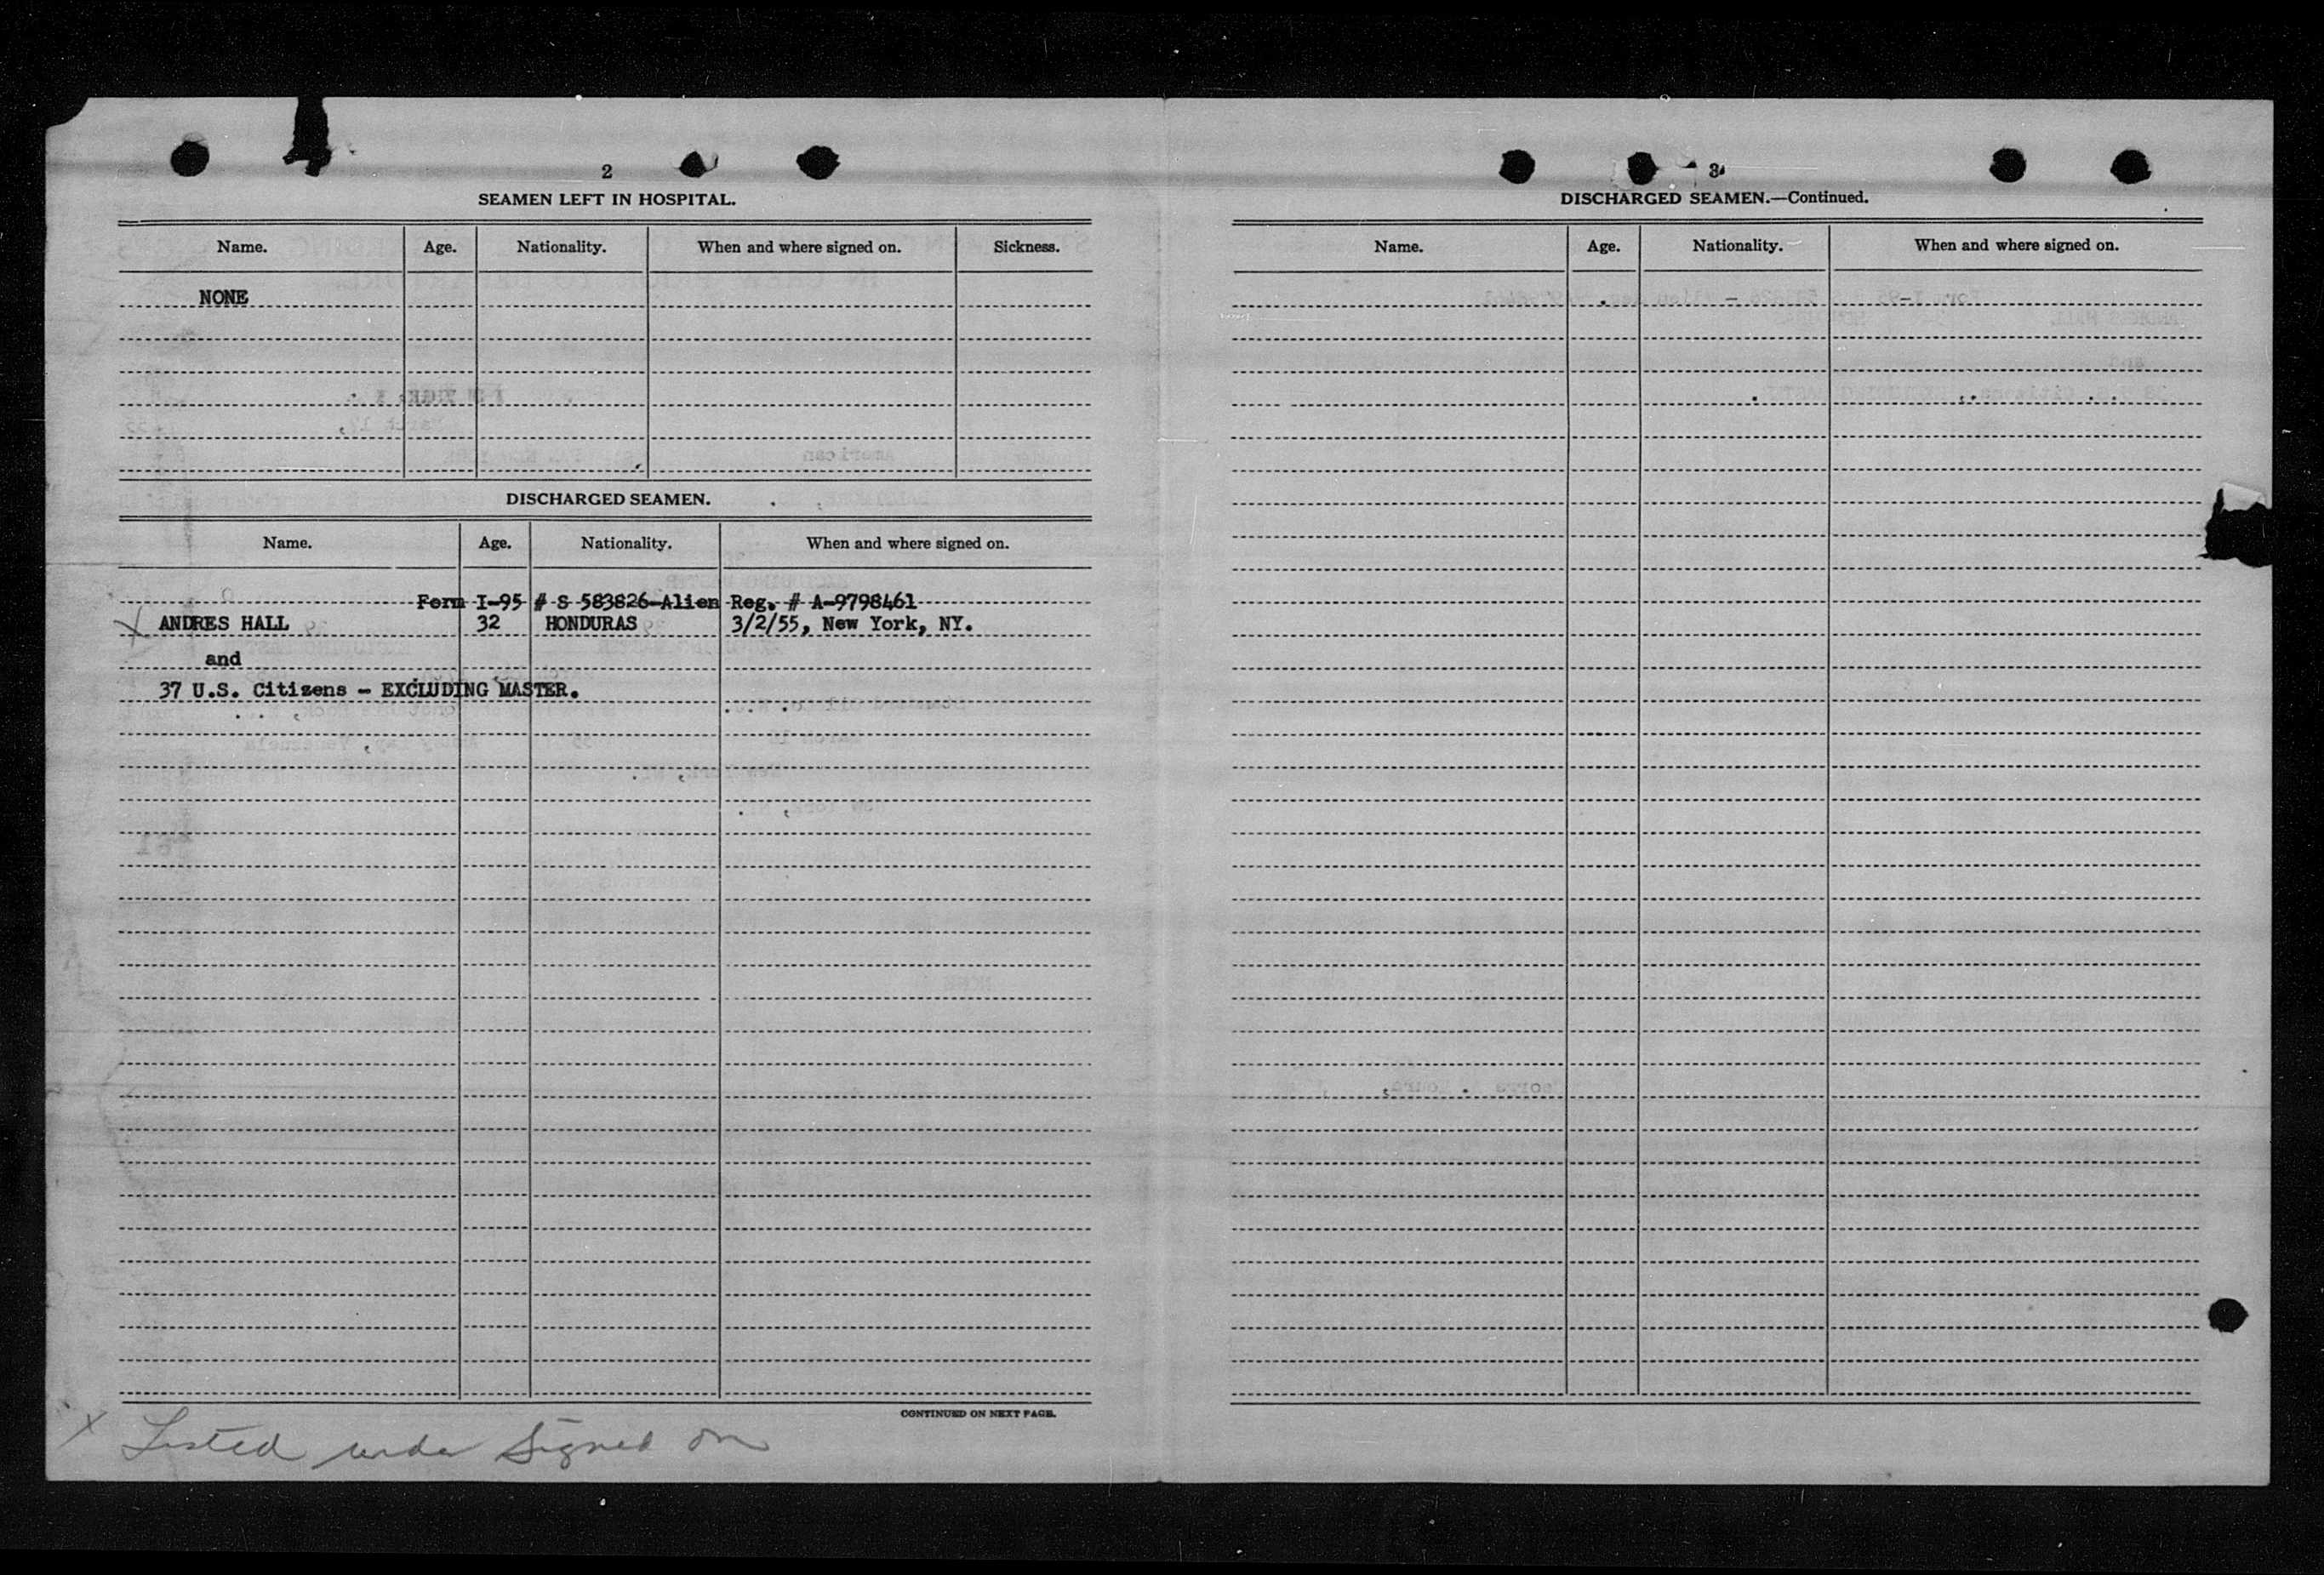 2
SEAMEN LEFT IN HOSPITAL.
Name. Age. Nationality. When and where signed on. Sickness.
NONE
DISCHARGED SEAMEN.
Name. Age. Nationality. When and where signed on.
Form I-95 # S 583826-Alien Reg. # A-9798461
ANDRES HALL 32 HONDURAS 3/2/55, New York, NY.
and
37 U.S. Citizens - EXCLUDING MASTER.
CONTINUED ON NEXT PAGE.
x Listed under Signed on
3
DISCHARGED SEAMEN.—Continued.
Name. Age. Nationality. When and where signed on.